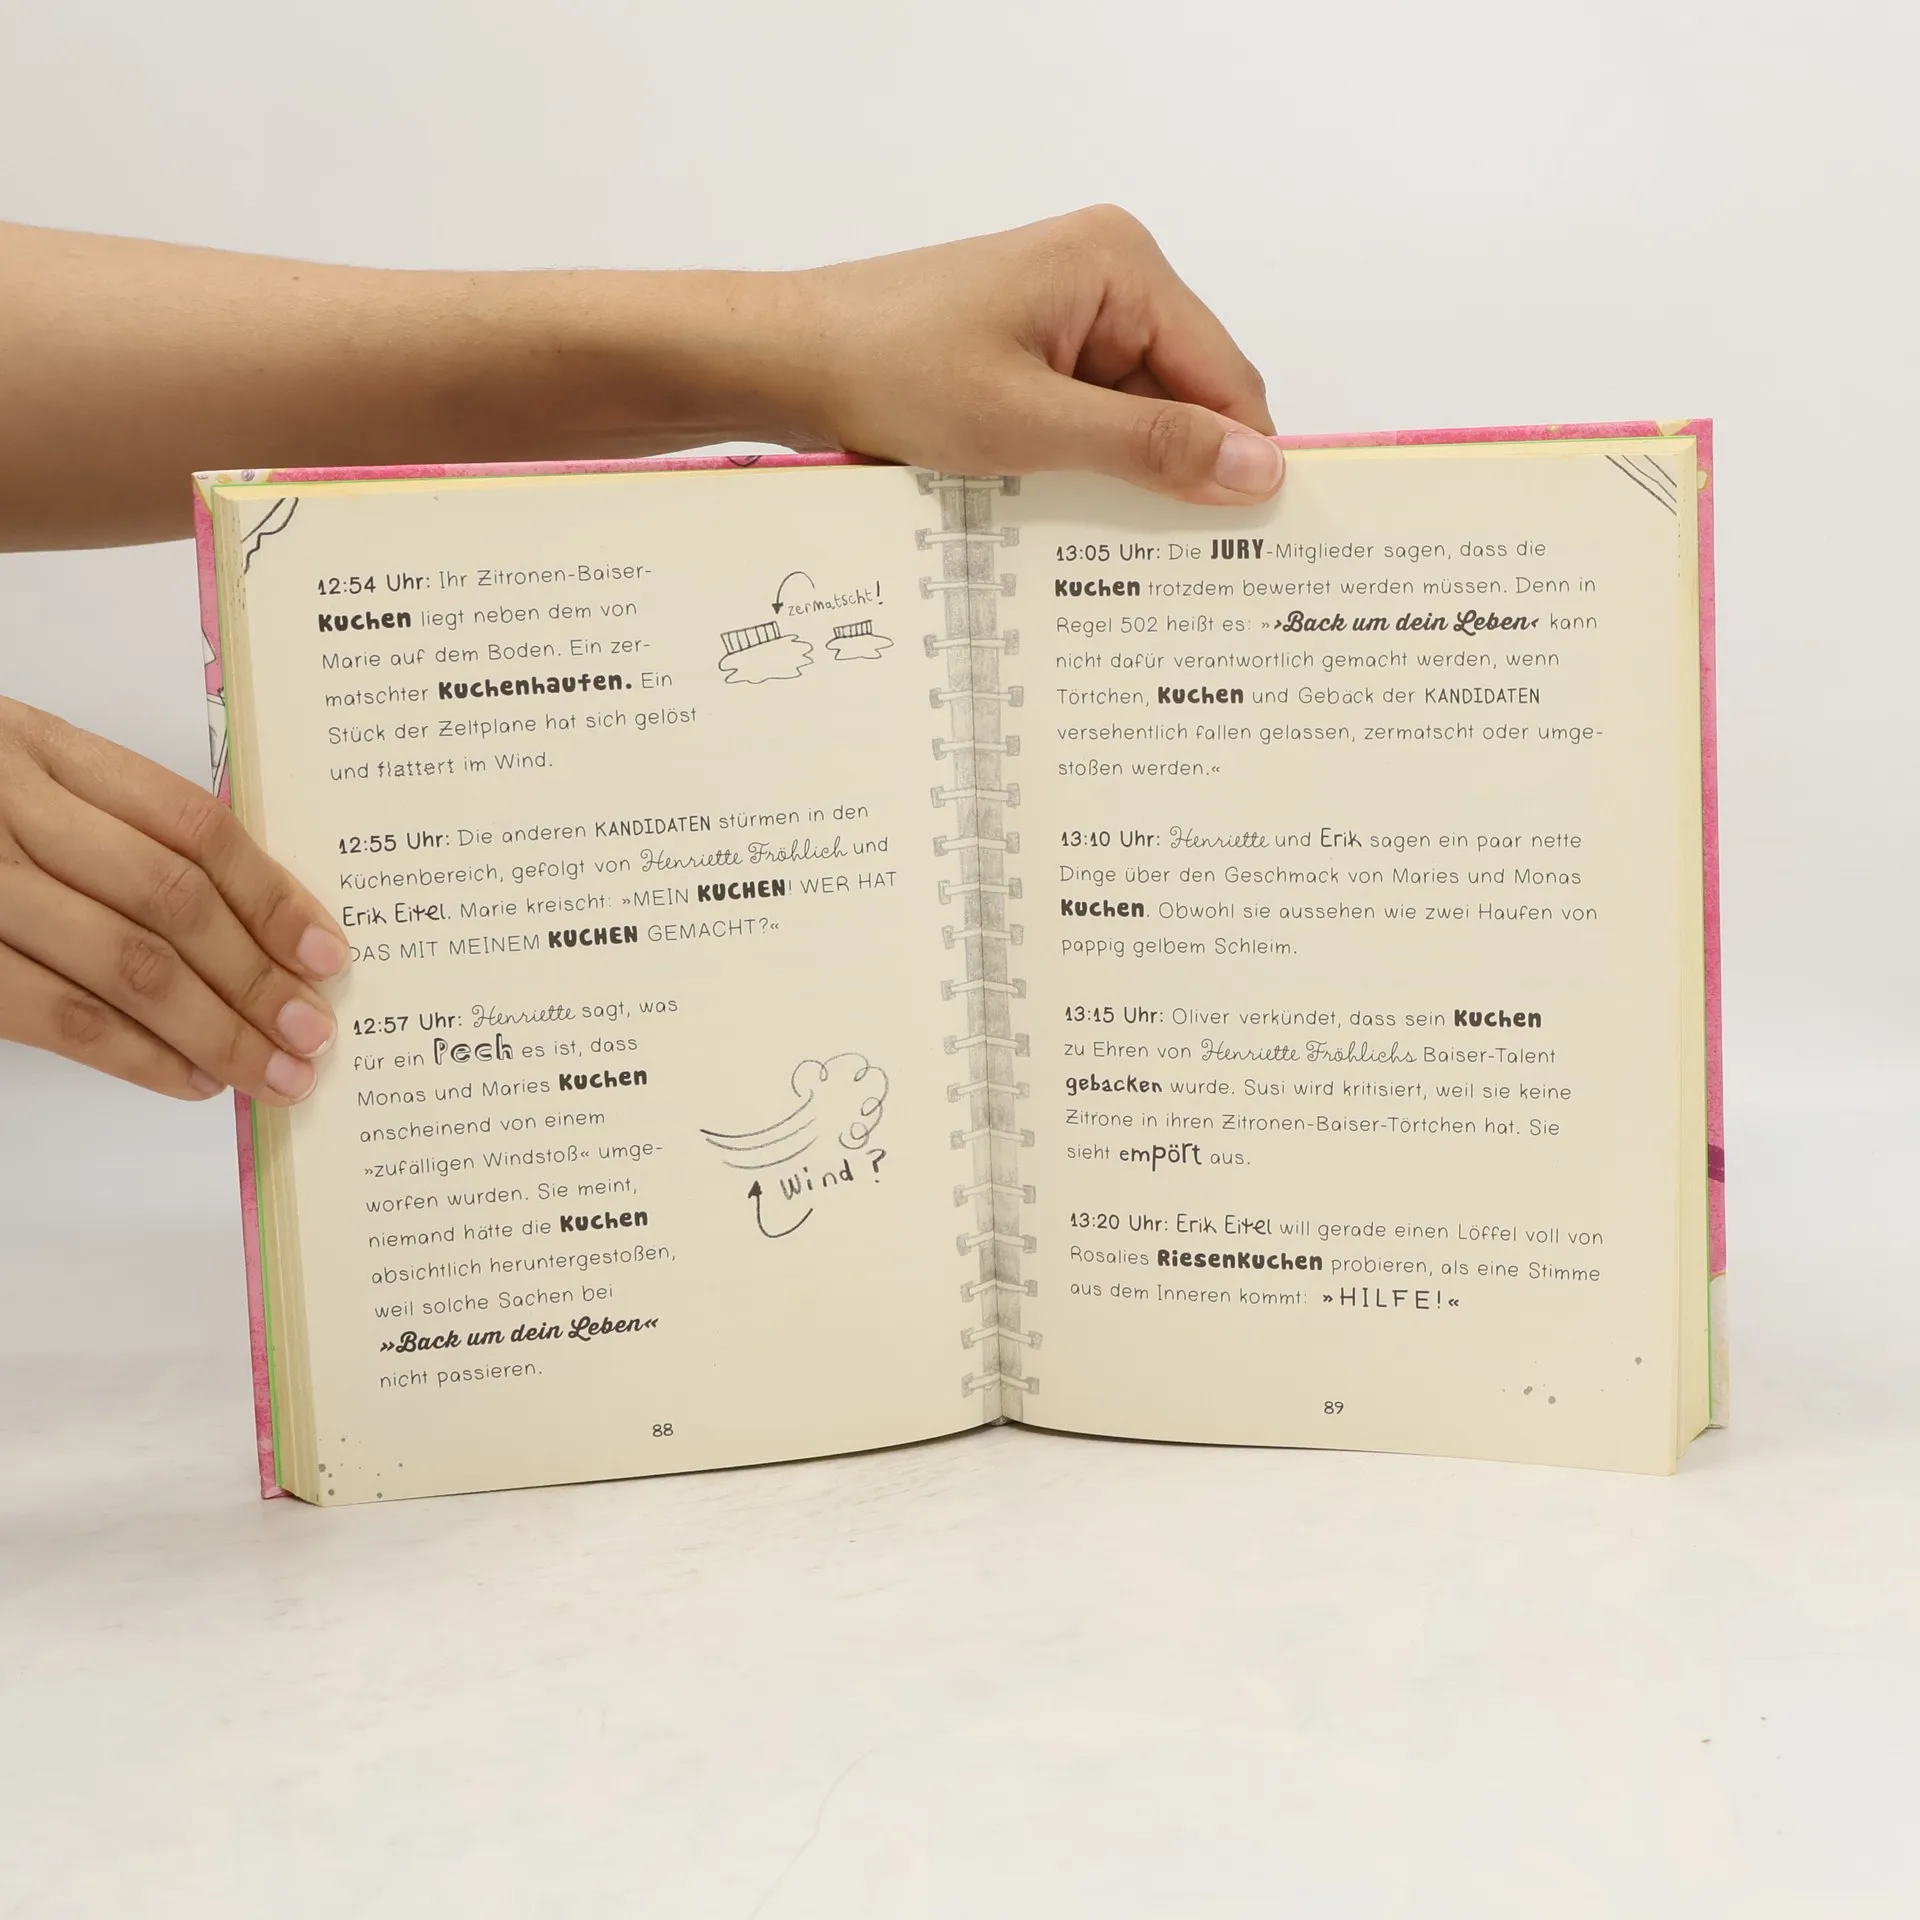 12:54 Uhr: Ihr Zitronen-Baiser-
Kuchen liegt neben dem von
Marie auf dem Boden. Ein zer-
matschter Kuchenhaufen. Ein
Stück der Zeltplane hat sich gelöst
und flattert im Wind.
zermatscht!
12:55 Uhr: Die anderen KANDIDATEN stürmen in den
Küchenbereich, gefolgt von Henriette Fröhlich und
Erik Eitel. Marie kreischt: »MEIN KUCHEN! WER HAT
DAS MIT MEINEM KUCHEN GEMACHT?«
12:57 Uhr: Henriette sagt, was
für ein Pech es ist, dass
Monas und Maries Kuchen
anscheinend von einem
»zufälligen Windstoß« umge-
worfen wurden. Sie meint,
niemand hätte die Kuchen
absichtlich heruntergestoßen,
weil solche Sachen bei
»Back um dein Leben«
nicht passieren.
Wind?
88
13:05 Uhr: Die JURY-Mitglieder sagen, dass die
Kuchen trotzdem bewertet werden müssen. Denn in
Regel 502 heißt es: »›Back um dein Leben‹ kann
nicht dafür verantwortlich gemacht werden, wenn
Törtchen, Kuchen und Gebäck der KANDIDATEN
versehentlich fallen gelassen, zermatscht oder umge-
stoßen werden.«
13:10 Uhr: Henriette und Erik sagen ein paar nette
Dinge über den Geschmack von Maries und Monas
Kuchen. Obwohl sie aussehen wie zwei Haufen von
pappig gelbem Schleim.
13:15 Uhr: Oliver verkündet, dass sein Kuchen
zu Ehren von Henriette Fröhlichs Baiser-Talent
gebacken wurde. Susi wird kritisiert, weil sie keine
Zitrone in ihren Zitronen-Baiser-Törtchen hat. Sie
sieht empört aus.
13:20 Uhr: Erik Eitel will gerade einen Löffel voll von
Rosalies Riesenkuchen probieren, als eine Stimme
aus dem Inneren kommt: »HILFE!«
89